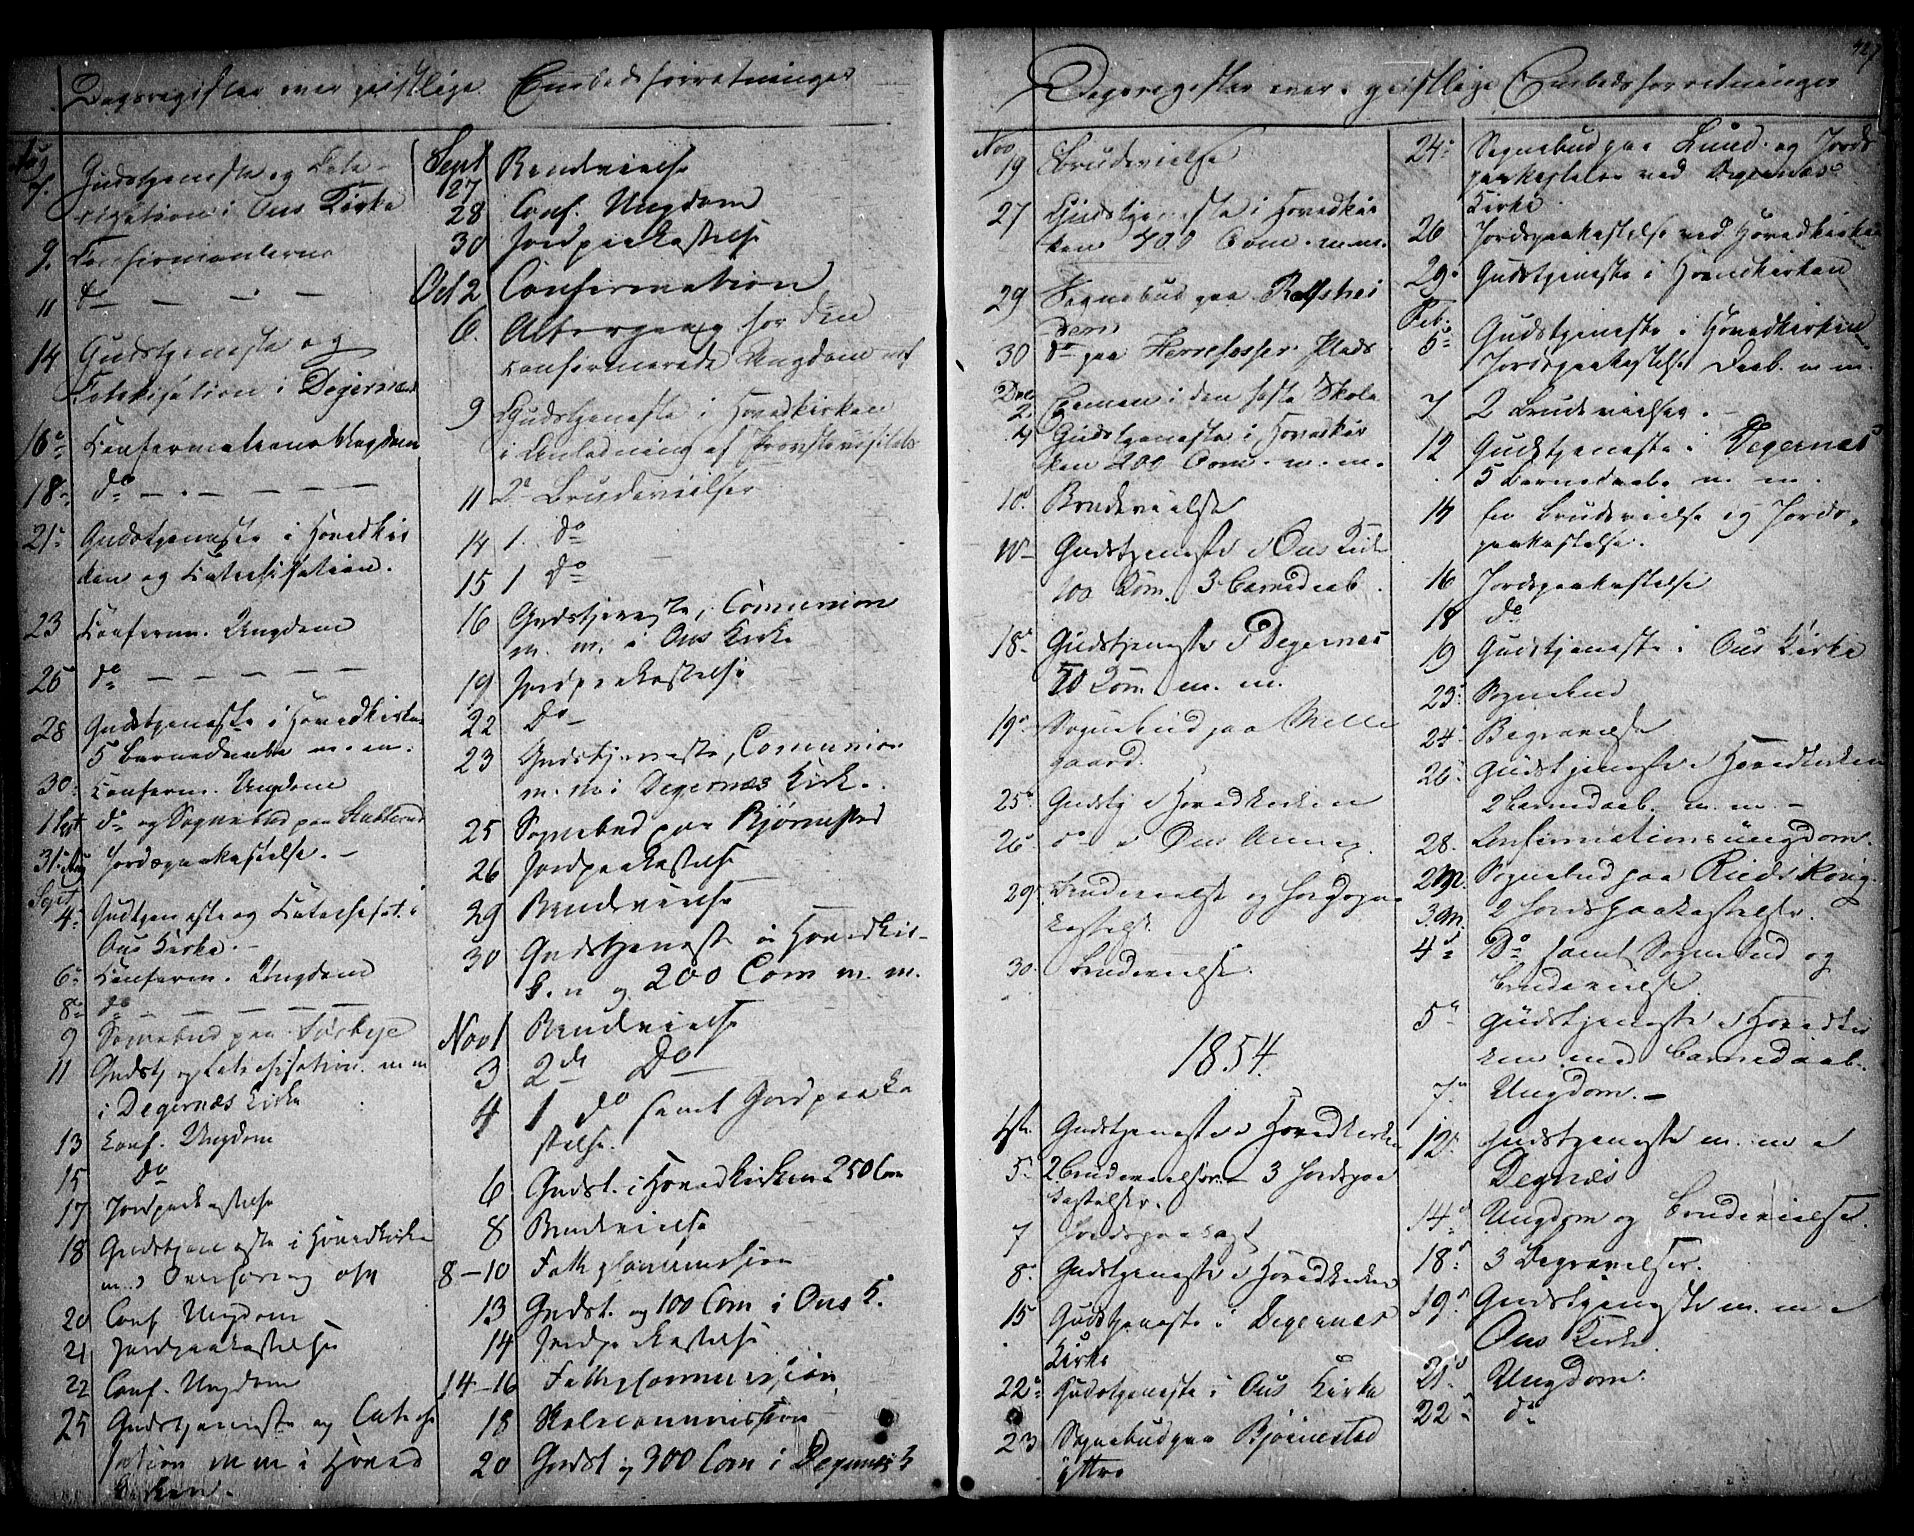 Dagsregister over geistlige Embedsforretninger
Aug
7. Gudstjeneste og Cate-
kisation i Ous Kirke
9. Confirmanterne
11 do — — —
14 Gudstjeneste og
Catekisation i Degernæs
16 Confirmations Ungdom
18 do — — —
21 Gudstjeneste i Hovedkir
ken og Catechisation.
23 Conferm. Ungdom
25 do — — — —
28 Gudstjeneste i Hovedkirken
5 Barnedaabe m. m.
30 Conferm. Ungdom
1 Sept do og Sognebud paa
31 Aug Jordspaakastelse. —
Sept
4 Gudtjeneste og Catechisat. i
Ous Kirke. —
6 Conferm. Ungdom
8 do — — — —
9 Sognebud paa
11 Gudstj og Catechisation m m
i Degernæs Kirke
13 Conf. Ungdom
15 do
17 Jordpaakastelse
18 Gudstjeneste i Hovedkirke
20 Conf. Ungdom
21 Jordpaakastelse
22 Conf. Ungdom
25 Gudstjeneste og Catechi
sation m m i Hoved
kirken.
Sept
27 Brudevielse
28 Conf. Ungdom
30 Jordpaakastelse
Oct 2 Confirmation
6. Altergang for den
confirmerede Ungdom
9 Gudstjeneste i Hovedkirken
i Anledning af Provstevisitats
11 2 Brudevielser
14 1. do
15 1 do
16 Gudstjeneste, Comunion
m. m. i Ous Kirke
19 Jordpaakastelse
22 Do
23 Gudstjeneste, Comunion
m. m i Degernæs Kirk.
25 Sognebud paa Bjørnestad
26 Jordpaakastelse
29 Brudevielse
30 Gudstjeneste i Hovedkir-
ken og 200 Com m. m.
Nov 1 Brudevielse
3 2de Do
4 1 do samt Jordpaaka
stelse.
6 Gudst. i Hovedkirken 250 Com
8 Brudevielse
8-10 Fattigcommission
13 Gudst. og 100 Com i Ous K.
14 Jordpaakastelse
14-16 Fattigcommission
18 Skolecommission
20 Gudst og 300 Com i Degernæs K
Dagsregister over geistlige Embedsforretninger
Nov
19 Brudevielse
27 Gudstjeneste i Hovedkir
ken 400 Com. m. m.
29 Sognebud paa
30 do paa Herrefosser Plads
Dec
2. Examen i den faste Skole
4 Gudstjeneste i Hovedkir
ken 200 Com. m. m.
10. Brudevielse
Gudstjeneste i Ous Kirke
100 Com. 3 Barnedaab.
18 Gudstjeneste i Degernæs
50 Com. m. m.
19 Sognebud paa Melle
gaard.
25 Gudstj i Hovedkirken
26 do i Ous Annex.
29 Brudevielse og Jordspaa
kastelse
30. Brudevielse.
1854.
Gudstjeneste i Hovedkirken
5. 2 Brudevielser - 3 Jordspaa
kastelser.
7
8. Gudstjeneste i Hovedkirken
15 Gudstjeneste i Degernæs
Kirke
22 Gudstjeneste i Ous Kirke
23 Sognebud paa Bjørnestad
yttre
24 Sognebud paa Lund. og Jords
paakastelse ved Degernæs
Kirke.
26 Jordspaakastelse ved Hovedkirken
29 Gudstjeneste i Hovedkirken
Feb.
5 Gudstjeneste i Hovedkirken
Jordspaakastelse Daab. m m.
7 2 Brudevielser. —
12 Gudstjeneste i Degernæs
5 Barnedaabe m. m.
14 En Brudevielse og Jords-
paakastelse.
16 Jordspaakastelse
18 do
19 Gudstjeneste i Ous Kirke
23 Sognebud
24 Begravelse
26 Gudstjeneste i Hovedkirken
2 Barnedaab. m. m. —
28. Confirmationsungdom.
2 M. Sognebud paa
3. M. 2 Jordspaakastelser.
4 Do samt Sognebud og
Brudevielse.
5 Gudstjeneste i Hovedkir
ken med Barnedaab.
7. Ungdom. —
12 Gudstjeneste m. m i
Degnæs
14 Ungdom og Brudevielse.
18 3 Begravelser.
19 Gudstjeneste m. m i
Ous Kirke.
21 Ungdom.
22 do